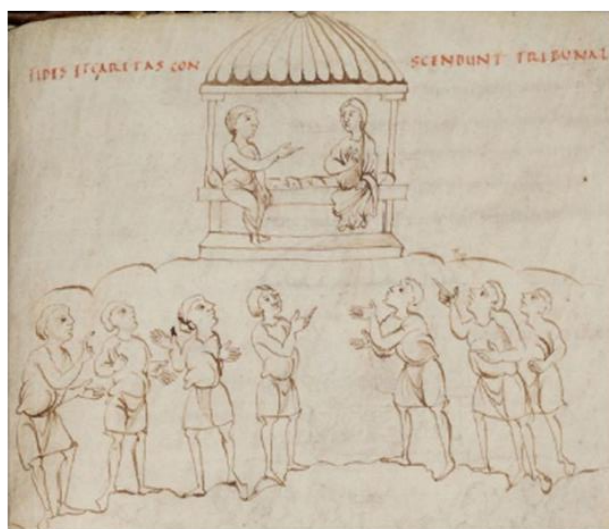 FIDES ET CARITAS CON SCENDUNT TRIBUNAL